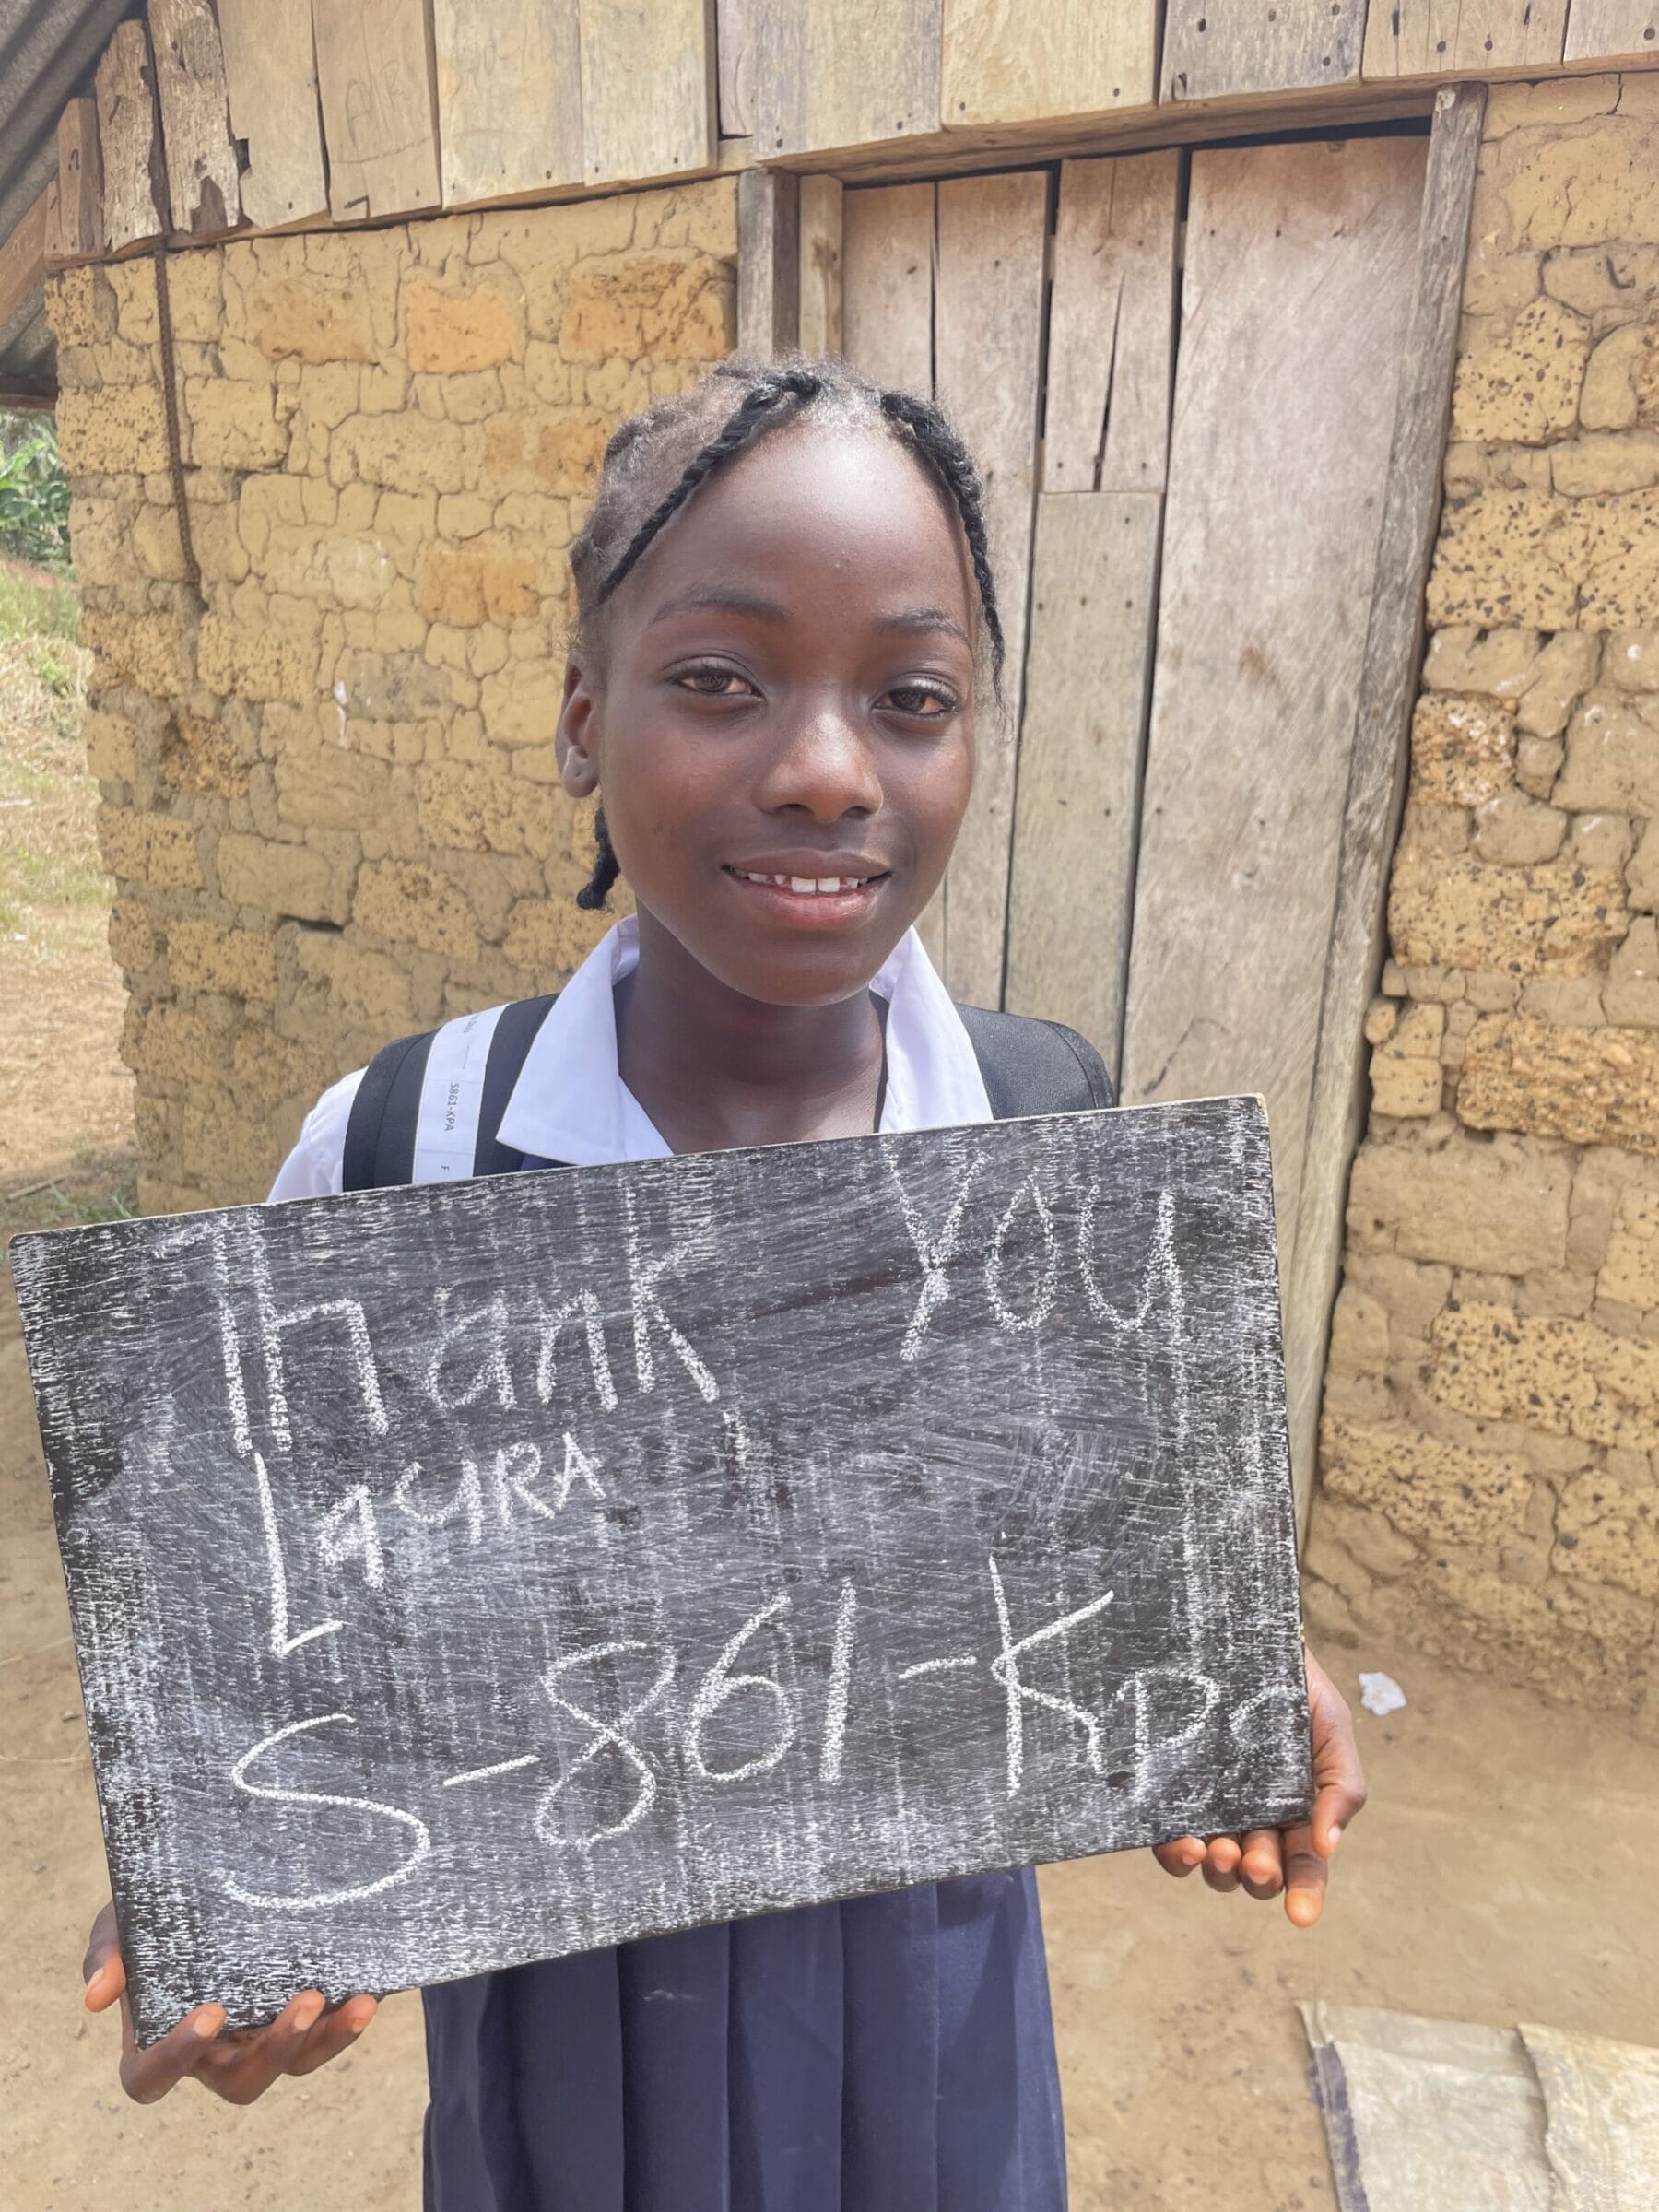 Thank You
LaURA
S-861-Kpa
S861-KPA F